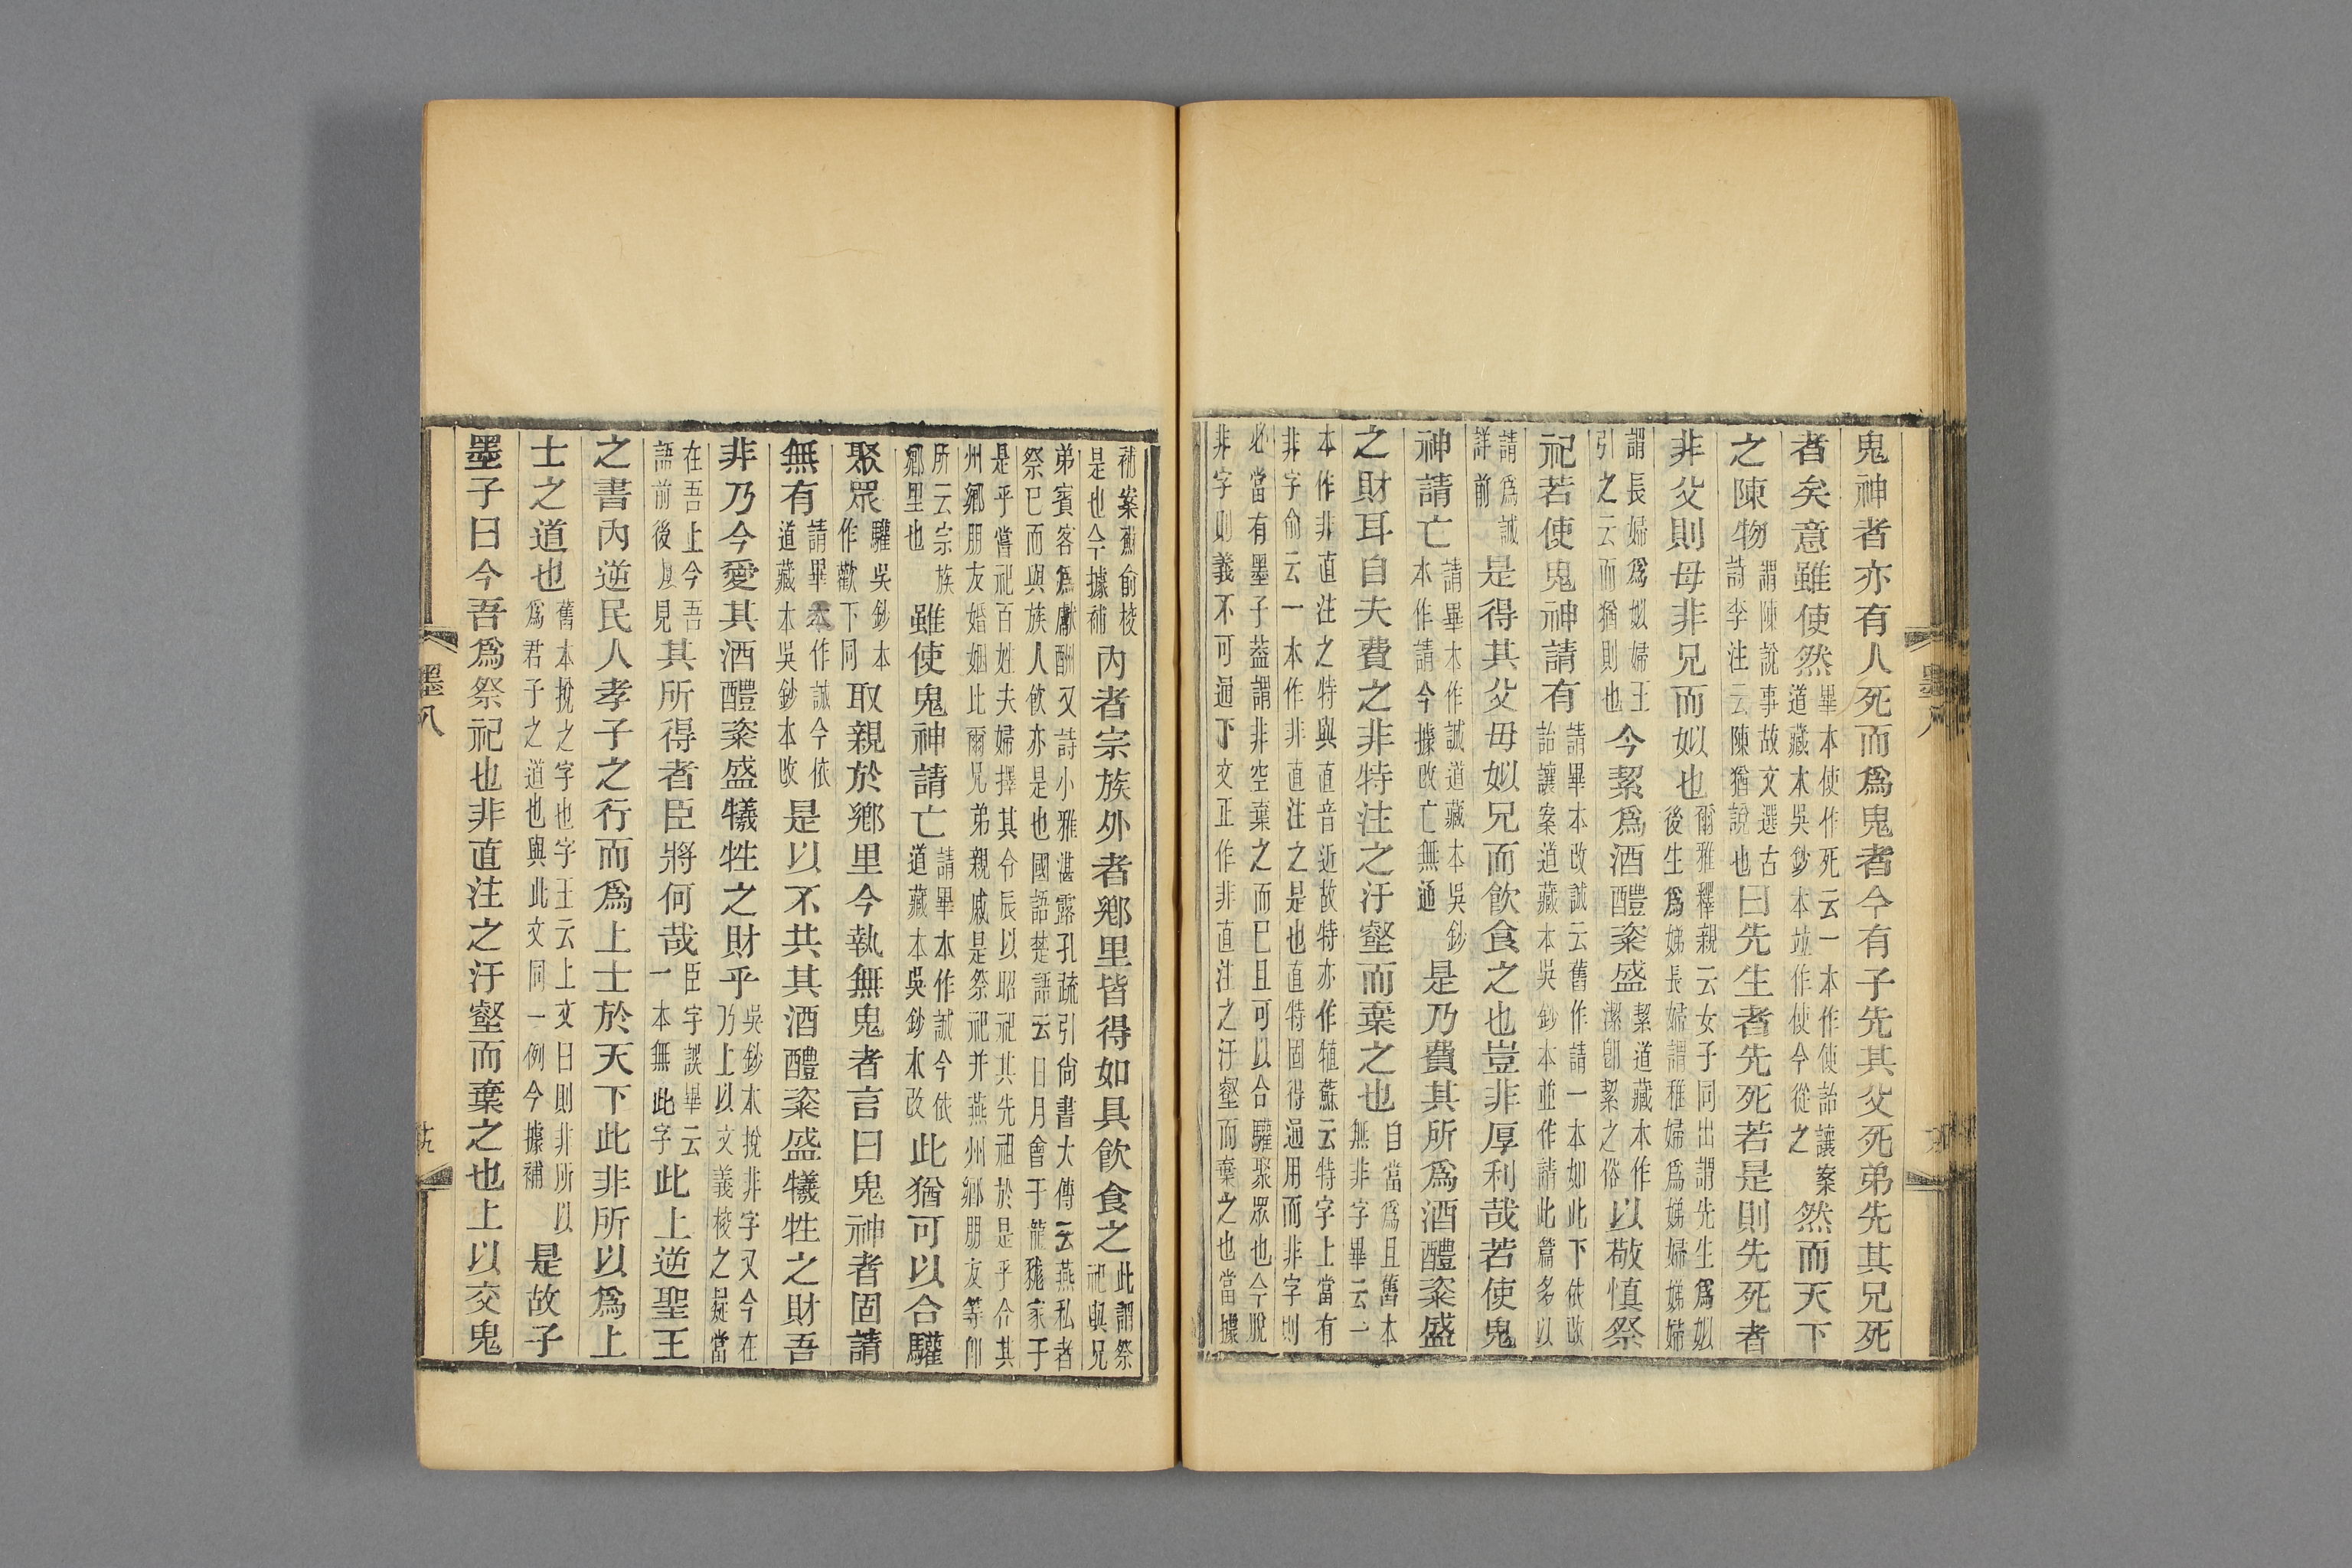 鬼神者亦有人死而爲鬼者今有子先其父死弟先其兄死
者矣意雖使然畢本使作死云一本作使詒讓案道藏本吳鈔本竝作使今從之然而天下
之陳物謂陳說事故文選古詩李注云陳猶說也曰先生者先死若是則先死者
非父則母非兄而姒也爾雅釋親云女子同出謂先生爲姒後生爲娣長婦謂稚婦爲娣婦娣婦
謂長婦爲姒婦王引之云而猶則也今絜爲酒醴粢盛絜道藏本作潔卽絜之俗以敬慎祭
祀若使鬼神請有請畢本改誠云舊作請一本如此下依改詒讓案道藏本吳鈔本並作請此篇多以
請爲誠詳前是得其父母姒兄而飲食之也豈非厚利哉若使鬼
神請亡請畢本作誠道藏本吳鈔本作請今據改亡無通是乃費其所爲酒醴粢盛
之財耳自夫費之非特注之汙壑而棄之也自當爲且舊本無非字畢云一
本作非直注之特與直音近故特亦作犆蘇云特字上當有
非字俞云一本作非直注之是也直特固得通用而非字則
必當有墨子葢謂非空棄之而已且可以合驩聚眾也今脫
非字則義不可通下文正作非直注之汙壑而棄之也當據
墨八
補案蘇俞校是也今據補內者宗族外者鄉里皆得如具飲食之此謂祭祀與兄
弟賓客爲獻酬又詩小雅湛露孔疏引尙書大傳云燕私者
祭已而與族人飲亦是也國語楚語云日月會于龍𧱓家于
是乎嘗祀百姓夫婦擇其令辰以昭祀其先祖於是乎合其
州鄉朋友婚姻比爾兄弟親戚是祭祀并燕州鄉朋友等卽
所云宗族鄉里也雖使鬼神請亡請畢本作誠今依道藏本吳鈔本改此猶可以合驩
聚眾驩吳鈔本作歡下同取親於鄉里今執無鬼者言曰鬼神者固請
無有請畢本作誠今依道藏本吳鈔本改是以不共其酒醴粢盛犧牲之財吾
非乃今愛其酒醴粢盛犧牲之財乎吳鈔本挩非字又今在乃上以文義校之疑當
在吾上今吾語前後屢見其所得者臣將何哉臣字誤畢云一本無此字此上逆聖王
之書內逆民人孝子之行而爲上士於天下此非所以爲上
士之道也舊本挩之字也字王云上文曰則非所以爲君子之道也與此文同一例今據補是故子
墨子曰今吾爲祭祀也非直注之汙壑而棄之也上以交鬼
墨八